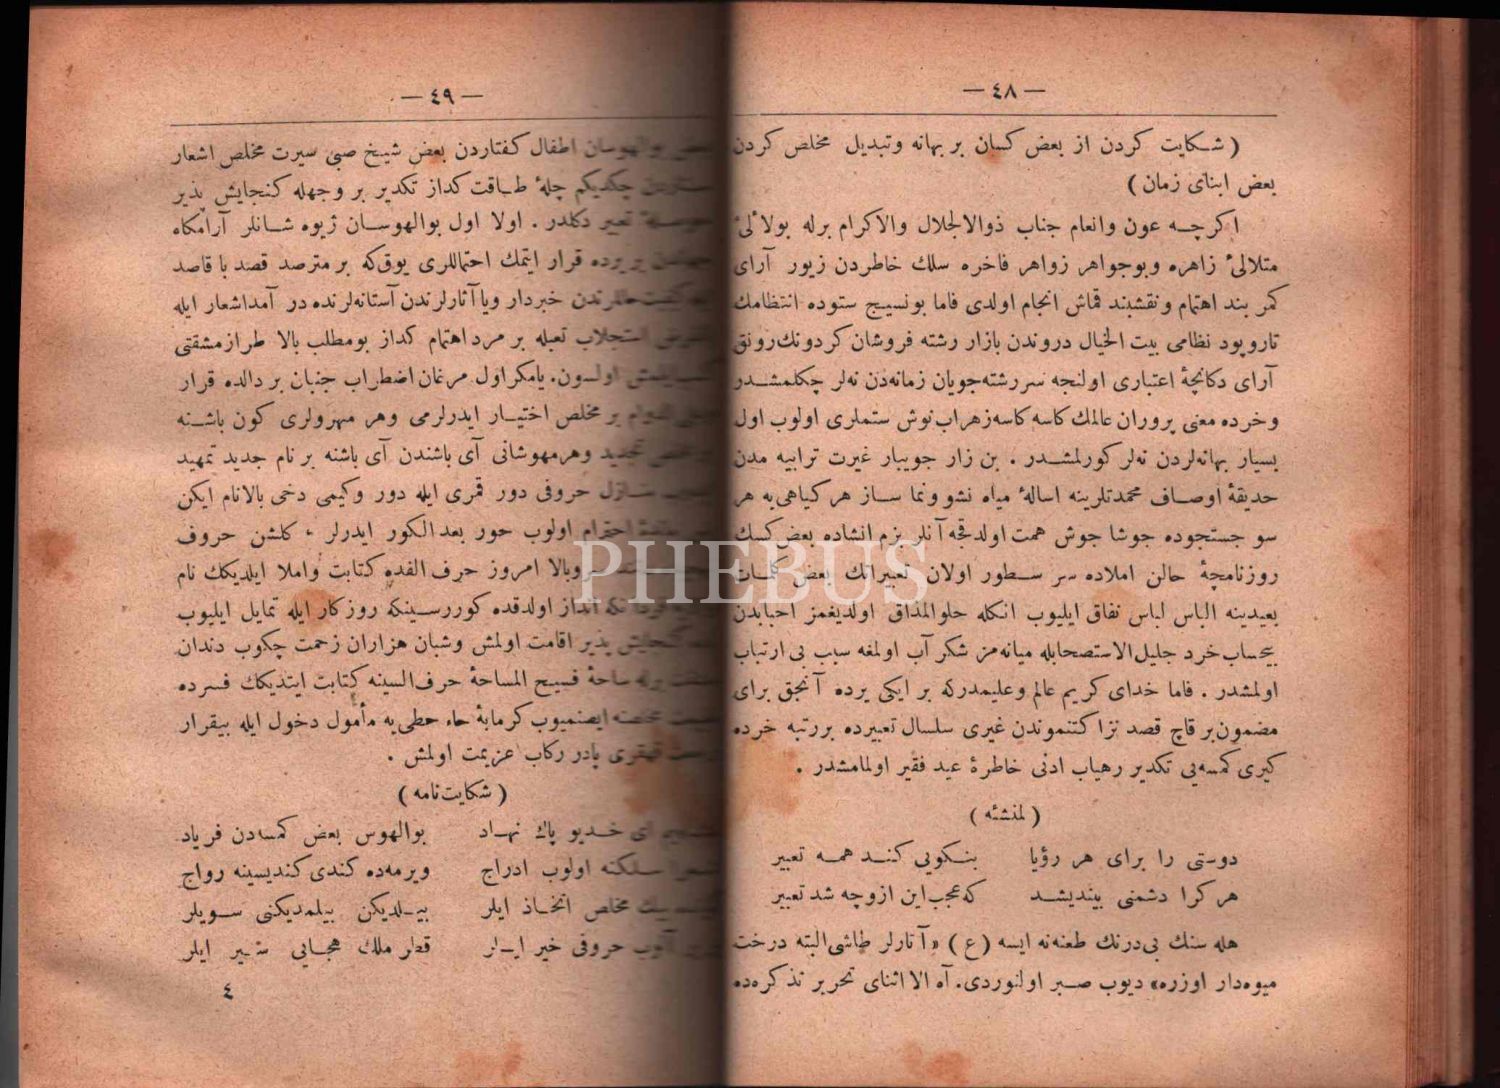 — ٤٨ —
( شكايت كردن از بعض كسان بر بهانه وتبديل مخلص كردن
بعض ابناى زمان )
اكرچه عون وانعام جناب ذوالجلال والاكرام برله بولآلئ
متلالئ زاهره وبوجواهر زواهر فاخره سلك خاطردن زيور آراى
كمر بند اهتمام ونقشبند قماش انجام اولدى فاما بونسيج ستوده انتظامك
تاروپود نظامى بيت الخيال دروندن بازار رشته فروشان كردونك رونق
آراى دكانچۀ اعتبارى اولنجه سررشته‌جويان زمانه‌دن نه‌لر چكلمشدر
وخرده معنى پروران عالمك كاسه كاسه زهراب‌نوش ستملرى اولوب اول
بسيار بهانه‌لردن نه‌لر كورلمشدر . بن زار جويبار غيرت ترابيه مدن
حديقۀ اوصاف محمدتلرينه اسالۀ مياه نشو ونما ساز هر كياهى‌يه هر
سو جستجوده جوشا جوش همت اولدقجه آنلر بزم انشاده بعض كسك
روزنامچۀ حالن املاده سر سطور اولان تعبيراتك بعض كلمات
بعيدينه الباس لباس نفاق ايليوب انكله حلوالمذاق اولديغمز احبابدن
بيحساب خرد جليل‌الاستصحابله ميانه‌مز شكر آب اولمغه سبب بى ارتياب
اولمشدر . فاما خداى كريم عالم وعليمدركه بر ايكى يرده آنجق براى
مضمون بر قاچ قصد نزاكتنموندن غيرى سلسال تعبيرده بر رتبه خرده
كيرى كمسه‌يى تكدير رهياب ادنى خاطرۀ عبد فقير اولمامشدر .
( لمنشئه )
دوستى را براى هر رؤيا بنكويى كند همه تعبير
هر كرا دشمنى بينديشد كه عجب اين ازوچه شد تعبير
هله سنك بى‌درنك طعنه‌نه ايسه (ع) «آتارلر طاشى البته درخت
ميوه‌دار اوزره» ديوب صبر اولنوردى. آه الا اثناى تحرير تذكره‌ده
— ٤٩ —
بوالهوسان اطفال كفتاردن بعض شيخ صبى سيرت مخلص اشعار
چكديكم چلۀ طاقت كداز تكدير بر وجهله كنجايش پذير
تعبير دكلدر . اولا اول بوالهوسان ژيوه شانلر آرامكاه
بريرده قرار ايتمك احتماللرى يوق‌كه بر مترصد قصد با قاصد
خبردار ويا آثارلرندن آستانه‌لرنده در آمد اشعار ايله
استجلاب تعبله بر مرد اهتمام كداز بومطلب بالا طراز مشقتى
اولسون. يامكر اول مرغان اضطراب جنبان بر دالده قرار
بر مخلص اختيار ايدرلرمى وهر مهرولرى كون باشنه
تجديد وهرمهوشانى آى باشندن آى باشنه بر نام جديد تمهيد
حروفى دور قمرى ايله دور وكيمى دخى بالانام ايكن
احترام اولوب حور بعد الكور ايدرلر ، كلشن حروف
وبالا امروز حرف الفده كتابت واملا ايلديكك نام
انداز اولدقده كوررسينكه روزكار ايله تمايل ايليوب
كنجايش پذير اقامت اولمش وشبان هزاران زحمت چكوب دندان
برله ساحۀ فسيح المساحۀ حرف السينه كتابت ايتديكك فسرده
مخلصنه ايصنميوب كرمابۀ حاء حطى‌يه مأمول دخول ايله بيقرار
قهقرى پادر ركاب عزيمت اولمش .
( شكايت‌نامه )
اى خديو پاك نهاد بوالهوس بعض كمسه‌دن فرياد
سلكنه اولوب ادراج ويرمه‌ده كندى كنديسينه رواج
مخلص اتخاذ ايلر بيلديكن بيلمديكنى سويلر
حروفى خير ايلر قطر ملك هجايى سير ايلر
٤